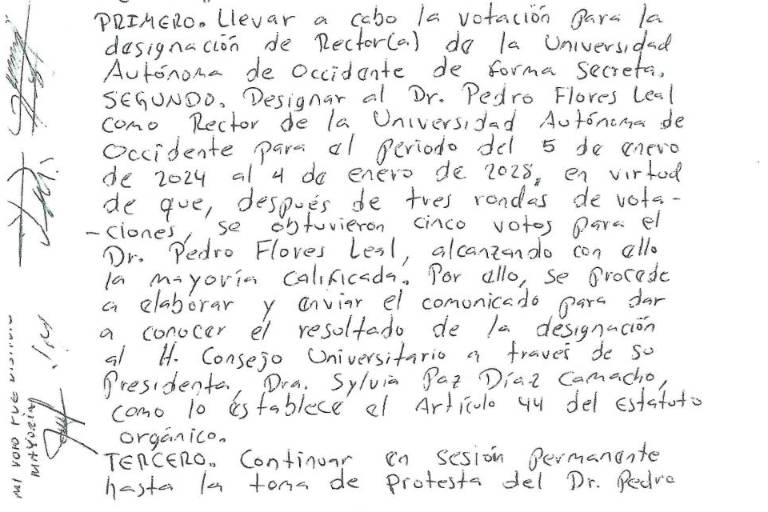 PRIMERO. Llevar a cabo la votación para la
designación de Rector(a) de la Universidad
Autónoma de Occidente de forma secreta.
SEGUNDO. Designar al Dr. Pedro Flores Leal
como Rector de la Universidad Autónoma de
Occidente para el periodo del 5 de enero
de 2024 al 4 de enero de 2028, en virtud
de que, después de tres rondas de vota-
-ciones, se obtuvieron cinco votos para el
Dr. Pedro Flores Leal, alcanzando con ello
la mayoría calificada. Por ello, se procede
a elaborar y enviar el comunicado para dar
a conocer el resultado de la designación
al H. Consejo Universitario a través de su
Presidenta, Dra. Sylvia Paz Díaz Camacho,
como lo establece el Artículo 44 del Estatuto
orgánico.
TERCERO. Continuar en sesión permanente
hasta la toma de protesta del Dr. Pedro
MI VOTO FUE
MAYORIA